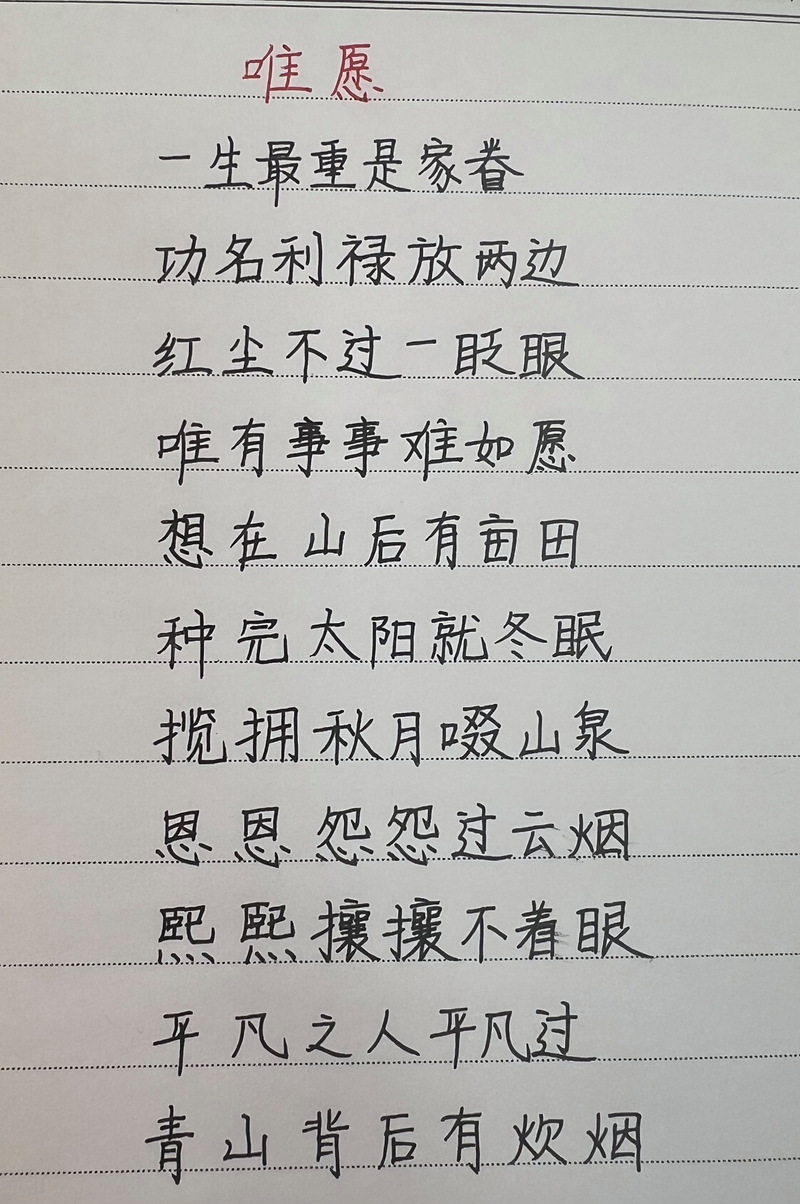 唯愿
一生最重是家眷
功名利禄放两边
红尘不过一眨眼
唯有事事难如愿
想在山后有亩田
种完太阳就冬眠
揽拥秋月啜山泉
恩恩怨怨过云烟
熙熙攘攘不着眼
平凡之人平凡过
青山背后有炊烟